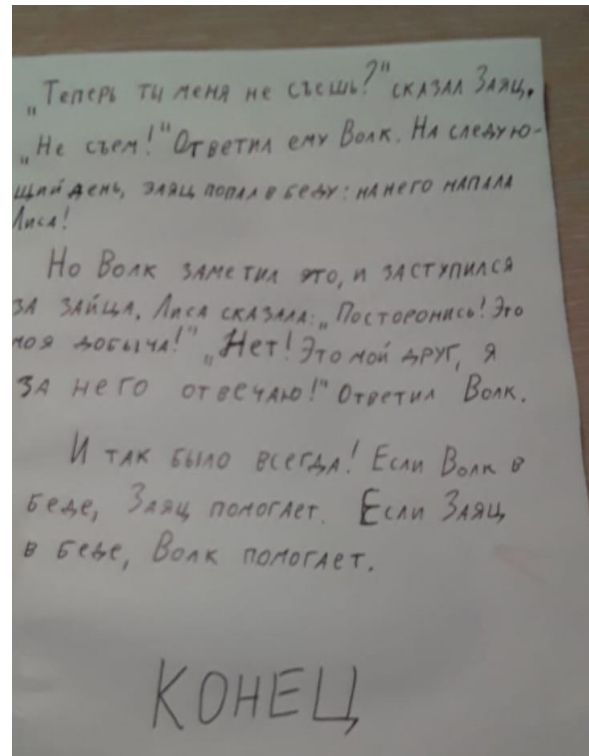 „Теперь ты меня не съешь?" сказал Заяц.
„Не съем!" Ответил ему Волк. На следую-
щий день, заяц попал в беду: на него напала
Лиса!
Но Волк заметил это, и заступился
за зайца. Лиса сказала: „Посторонись! Это
моя добыча!" „Нет! Это мой друг, я
за него отвечаю!" Ответил Волк.
И так было всегда! Если Волк в
беде, Заяц помогает. Если Заяц
в беде, Волк помогает.
КОНЕЦ